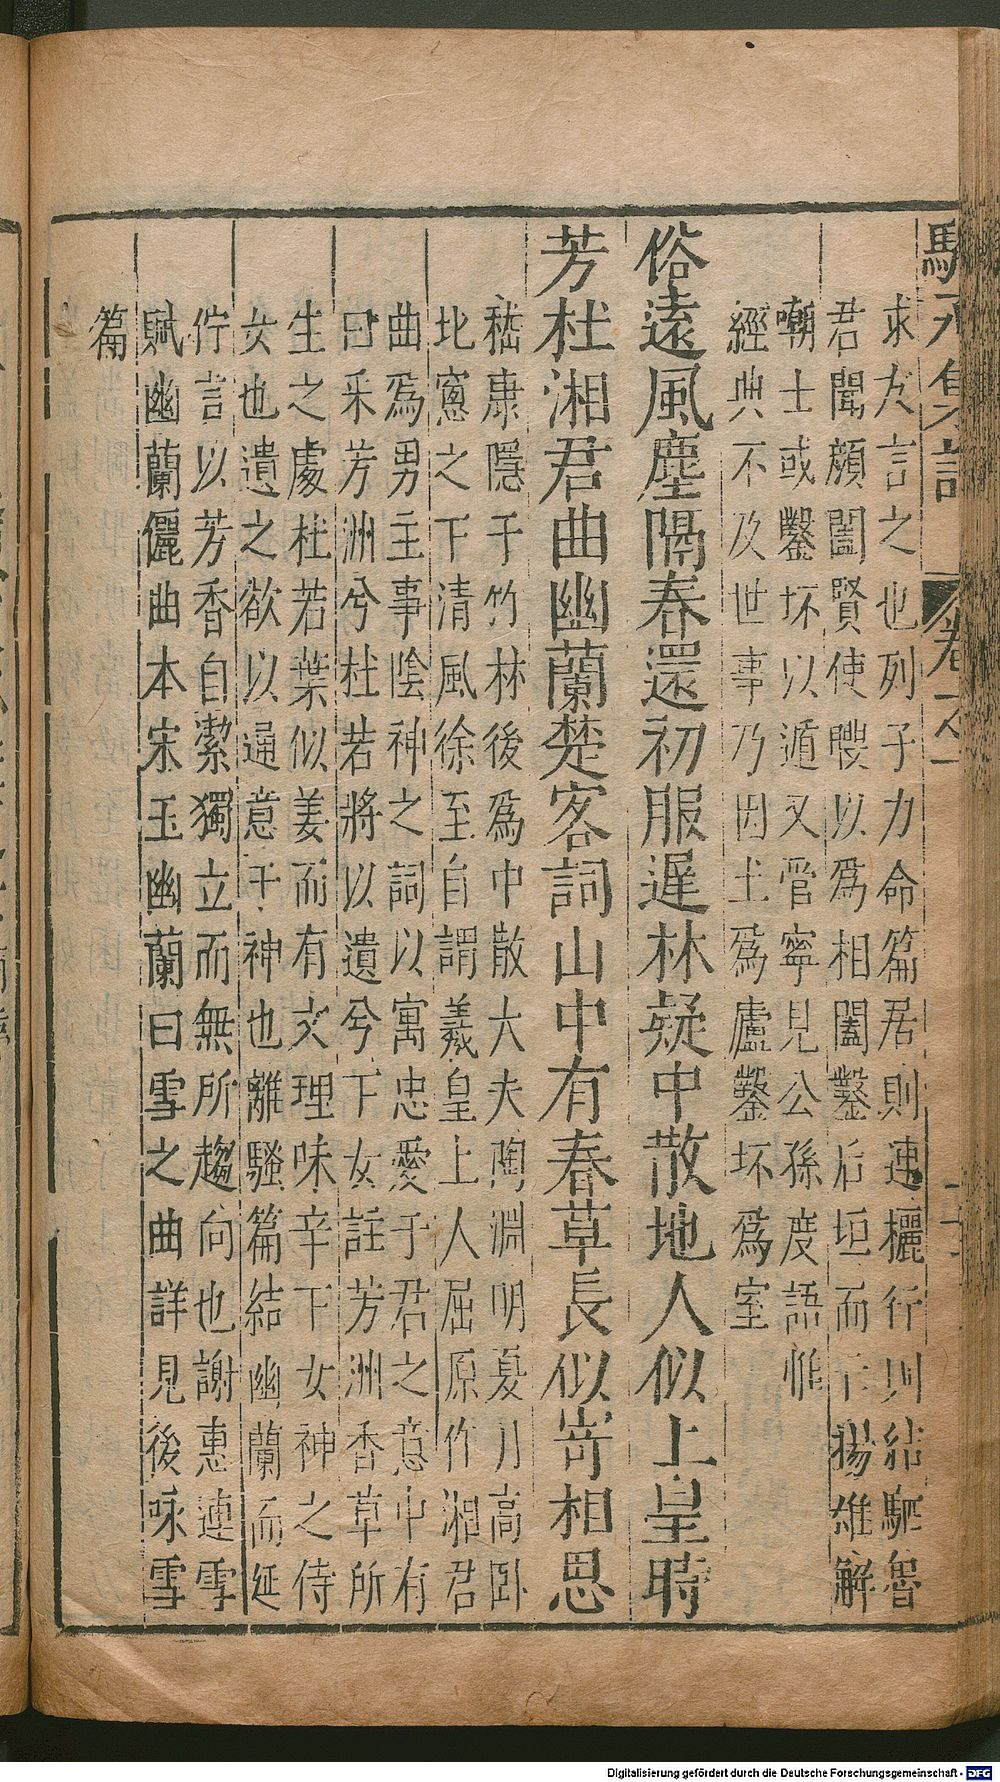 求友言之也列子力命篇居則連欐行則結駟魯
君聞顏闔賢使聘以爲相闔鑿后垣而亡揚雄解
嘲士或鑿坏以遁又管寧見公孫度語惟
經典不及世事乃因土爲廬鑿坏爲室
俗遠風塵隔春還初服遲林疑中散地人似上皇時
芳杜湘君曲幽蘭楚客詞山中有春草長似寄相思
嵇康隱于竹林後爲中散大夫陶淵明夏月高卧
北窻之下清風徐至自謂羲皇上人屈原作湘君
曲爲男主事陰神之詞以寓忠愛于君之意中有
曰采芳洲兮杜若將以遺兮下女註芳洲香草所
生之處杜若葉似姜而有文理味辛下女神之侍
女也遺之欲以通意于神也離騷篇結幽蘭而延
佇言以芳香自潔獨立而無所趨向也謝惠連雪
賦幽蘭儷曲本宋玉幽蘭曰雪之曲詳見後咏雪
篇
Digitalisierung gefördert durch die Deutsche Forschungsgemeinschaft - DFG